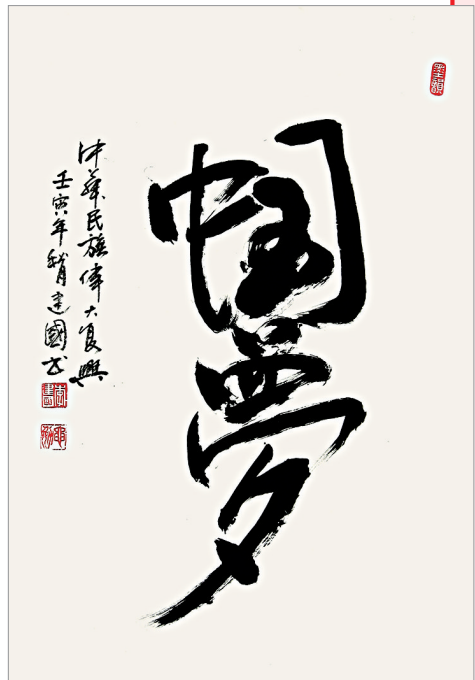 中国夢
中華民族偉大复興
壬寅年秋月建國书